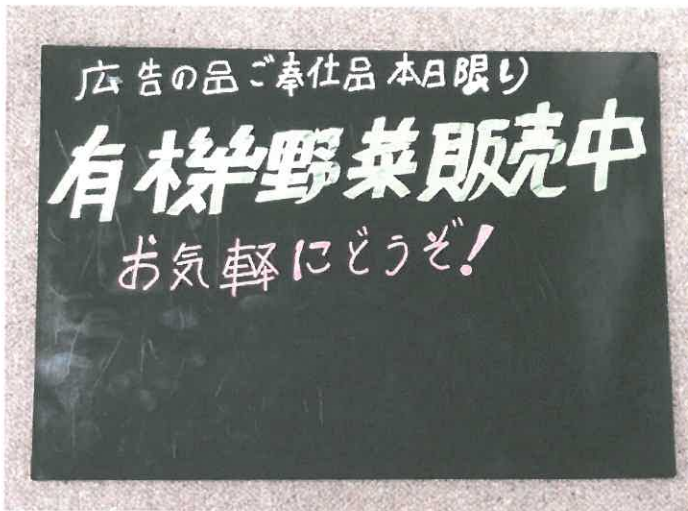 広告の品ご奉仕品本日限り
有機野菜販売中
お気軽にどうぞ!